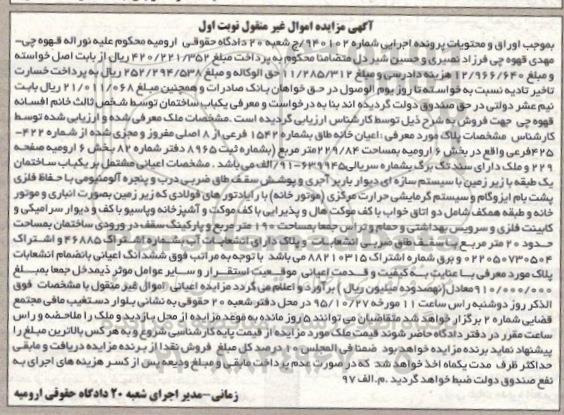 آگهی مزایده اموال غیر منقول نوبت اول
بموجب اوراق و محتویات پرونده اجرایی شماره ۹۴۰۱۰۲/ج شعبه ۲۰ دادگاه حقوقی ارومیه محکوم علیه نوراله قهوه چی-
مهدی قهوه چی فرزاد نصیری و حسین شیر دل متضامنا محکوم به پرداخت مبلغ ۴۲۰/۲۲۱/۳۵۲ ریال از بابت اصل خواسته
و مبلغ ۱۲/۹۶۶/۶۴۰ هزینه دادرسی و مبلغ ۱۱/۲۸۵/۳۱۲ حق الوکاله و مبلغ ۲۵۲/۲۹۴/۵۳۸ ریال به پرداخت خسارت
تاخیر تادیه نسبت به خواسته تا روز یوم الوصول در حق خواهان بانک صادرات و همچنین مبلغ ۲۱/۰۱۱/۰۶۸ ریال بابت
نیم عشر دولتی در حق صندوق دولت گردیده اند بنا به درخواست و معرفی یکباب ساختمان توسط شخص ثالث خانم افسانه
قهوه چی جهت فروش به شرح ذیل توسط کارشناس ارزیابی گردیده است. مشخصات ملک معرفی شده و ارزیابی شده توسط
کارشناس مشخصات پلاک مورد معرفی: اعیان خانه طاق بشماره ۱۵۴۲ فرعی از ۸ اصلی مفروز و مجزی شده از شماره ۴۲۲-
۴۲۵ فرعی واقع در بخش ۶ ارومیه بمساحت ۲۲۹/۸۴ متر مربع (بشماره ثبت ۸۹۶۵ دفتر شماره ۸۲ بخش ۶ ارومیه صفحه
۲۲۹ و ملک دارای سند تک برگ بشماره سریالی ۶۳۹۹۴۵-۹۱/الف می باشد. مشخصات اعیانی مشتمل بر یکباب ساختمان
یک طبقه با زیر زمین با سیستم سازه ای دیوار باربر آجری و پوشش سقف طاق ضربی درب و پنجره آلومینیومی با حفاظ فلزی
پشت بام ایزوگام و سیستم گرمایشی حرارت مرکزی (موتور خانه) با رادیاتور های فولادی که زیر زمین بصورت انباری و موتور
خانه و طبقه همکف شامل دو اتاق خواب با کف موکت هال و پذیرایی با کف موکت و آشپزخانه وپاسیو با کف و دیوار سرامیکی و
کابینت فلزی و سرویس بهداشتی و حمام و تراس جمعا بمساحت ۱۹۰ متر مربع و پارکینگ سقف در ورودی ساختمان بمساحت
حدود ۲۰ متر مربع با سقف طاق ضربی انشعابات و پلاک دارای انشعابات آب بشماره اشتراک ۴۶۸۸۵ و اشتراک
۰۲۲۰۵۰۷۳۰۵۰۴ و برق شماره اشتراک ۸۸۲۱۰۳۱۵ می باشد با توجه به مراتب فوق ششدانگ اعیانی بانضمام انشعابات
پلاک مورد معرفی با عنایت به کیفیت و قدمت اعیانی موقعیت استقرار و سایر عوامل موثر ذیمدخل جمعا بمبلغ
۹۱۰/۰۰۰/۰۰۰ معادل(نهصدوده میلیون ریال) برآورد و اعلام می گردد مزایده اعیانی اموال غیر منقول با مشخصات فوق
الذکر روز دوشنبه راس ساعت ۱۱ مورخه ۹۵/۱۰/۲۷ در محل دفتر شعبه ۲۰ حقوقی به نشانی بلوار دستغیب مافی مجتمع
قضایی شماره ۲ برگزار خواهد شد متقاضیان می توانند ۵ روز مانده به موعد مزایده از محل بازدید و ملک را ملاحضه و راس
ساعت مقرر در دفتر دادگاه حاضر شوند قیمت ملک مورد مزایده از قیمت پایه کارشناسی شروع و به هر کس بالاترین مبلغ را
پیشنهاد نماید برنده مزایده خواهد بود ضمنا فی المجلس ۱۰ درصد کل مبلغ فروش نقدا از برنده مزایده دریافت و مابقی
حداکثر ظرف مدت یکماه اخذ خواهد شد که در صورت عدم پرداخت مابقی و مبلغ ودیعه پس از کسر هزینه های اجرای به
نفع صندوق دولت ضبط خواهد گردید .م.الف ۹۷
زمانی-مدیر اجرای شعبه ۲۰ دادگاه حقوقی ارومیه